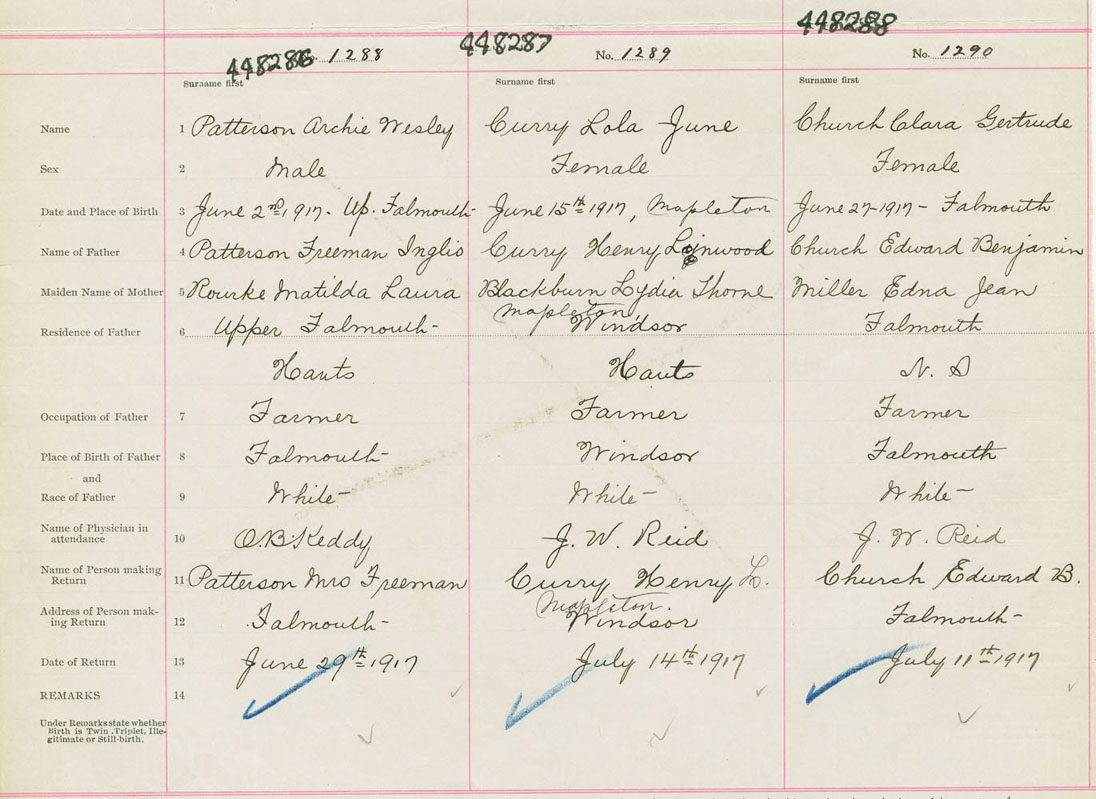 448286 No. 1288 448287 No. 1289 448288 No. 1290
Surname first Surname first Surname first
Name 1 Patterson Archie Wesley Curry Lola June Church Clara Gertrude
Sex 2 Male Female Female
Date and Place of Birth 3 June 2nd, 1917 - Up. Falmouth- June 15th 1917, Mapleton June 27-1917- Falmouth
Name of Father 4 Patterson Freeman Inglis Curry Henry Linwood Church Edward Benjamin
Maiden Name of Mother 5 Rourke Matilda Laura Blackburn Lydia Thorne Miller Edna Jean
Mapleton
Residence of Father 6 Upper Falmouth- Windsor Falmouth
Hants Hants N. S
Occupation of Father 7 Farmer Farmer Farmer
Place of Birth of Father 8 Falmouth- Windsor Falmouth
and
Race of Father 9 White- White- White-
Name of Physician in
attendance 10 O.B. Keddy J. W. Reid J. W. Reid
Name of Person making
Return 11 Patterson Mrs Freeman Curry Henry L. Church Edward B.
Mapleton.
Address of Person mak-
ing Return 12 Falmouth- Windsor Falmouth-
Date of Return 13 June 29th 1917 July 14th 1917 July 11th 1917
REMARKS 14
Under Remarks state whether
Birth is Twin, Triplet, Ille-
gitimate or Still-birth.